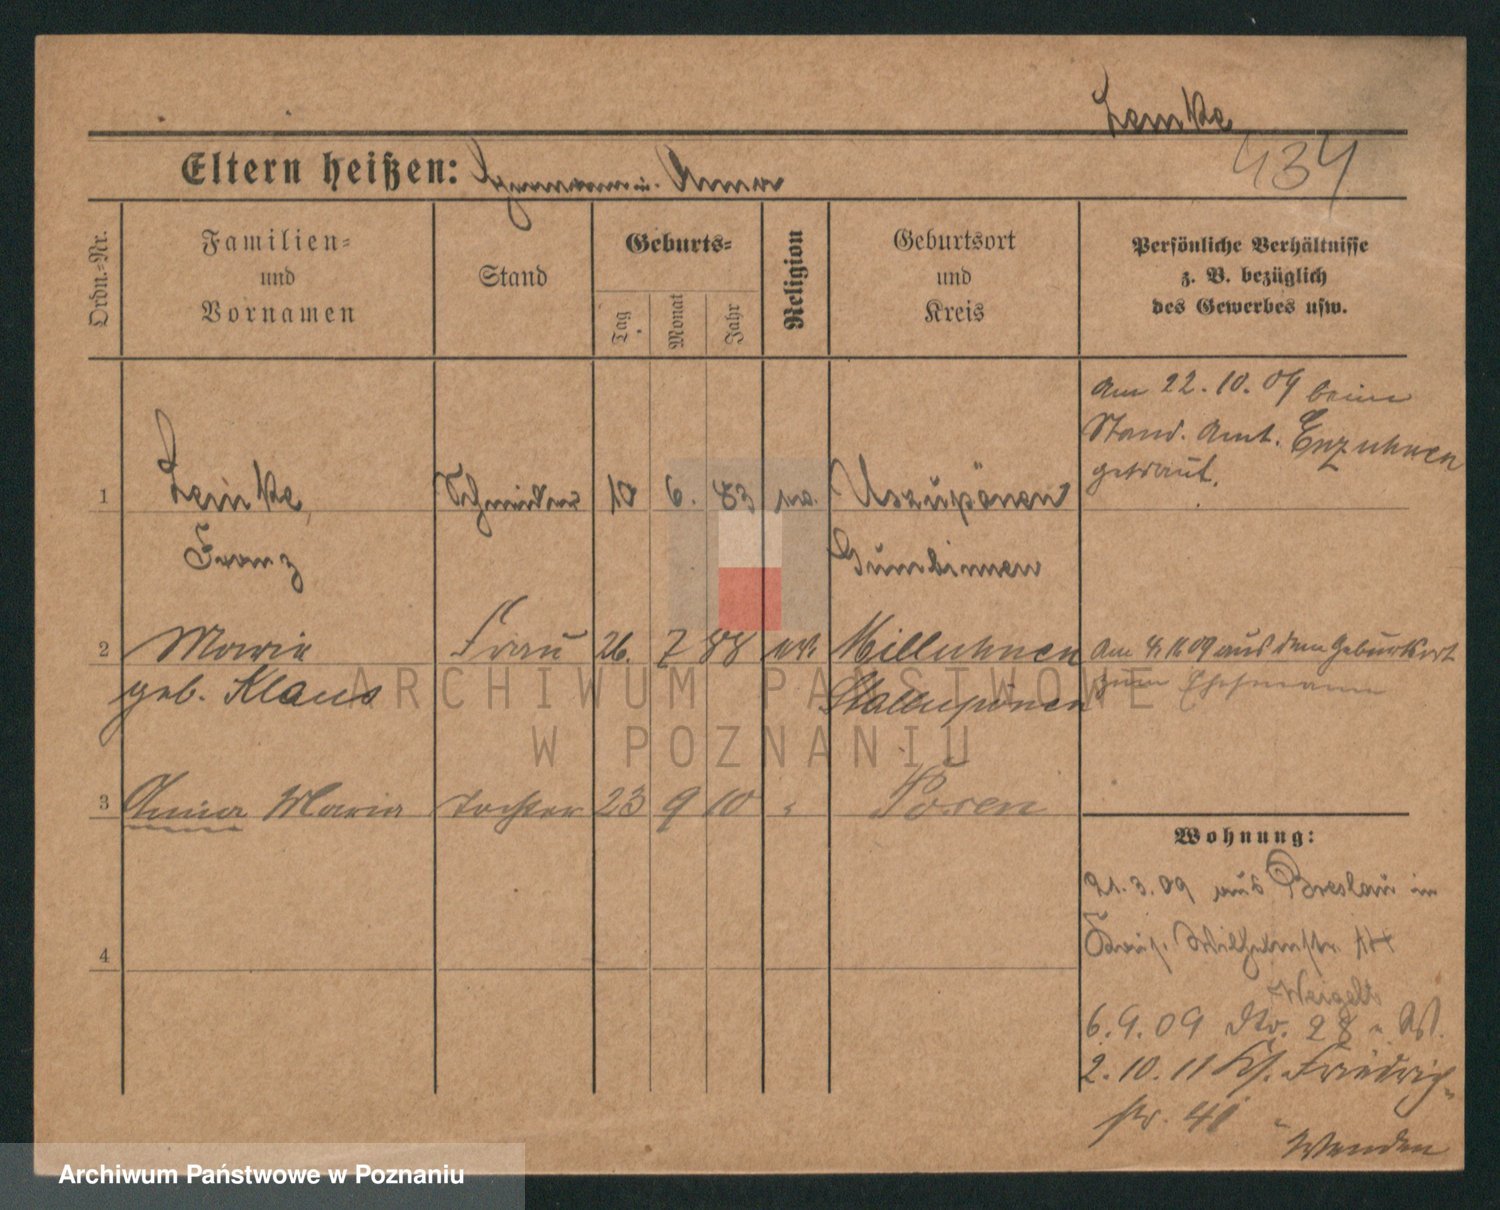 Lemke
434
Eltern heißen: Hermann u. Anna
Ordn.-Nr.
Familien-
und
Vornamen
Stand
Geburts-
Tag
Monat
Jahr
Religion
Geburtsort
und
Kreis
Persönliche Verhältnisse
z. B. bezüglich
des Gewerbes usw.
Am 22.10.09 beim
Stand. Amt. Enzuhnen
getraut.
1 Lemke, Schneider 10 6. 83 Uszupönen
Franz Gumbinnen
2 Marie Frau 26. 7 88 ev. Milluhnen
geb. Klaus Stallupönen
Am 4.11.09 aus dem Geburtsort
zum Ehemann
3 Anna Maria Tochter 23 9 10 " Posen
4
Wohnung:
21.3.09 aus Breslau in
Wilhelmstr.
Weigelt
6.9.09 dto. 28
2.10.11 Friedrich-
str. 41
Wenden
ARCHIWUM PAŃSTWOWE
W POZNANIU
Archiwum Państwowe w Poznaniu